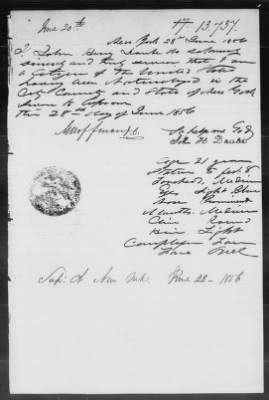 June 20th
# 13.737.
New York 28th June 1856
I John Henry Drake do solemnly
sincerely and truly swear that I am
a Citizen of the United States
having been Naturalized in the
City County and State of New York
Sworn to before
this 28th day of June 1856
So help me God
John H Drake
Age 21 years
Stature 5 feet 8
Forehead Medium
Eyes Light Blue
Nose Prominent
Mouth Medium
Chin Round
Hair Light
Complexion Fair
Face Oval
New York June 28 - 1856